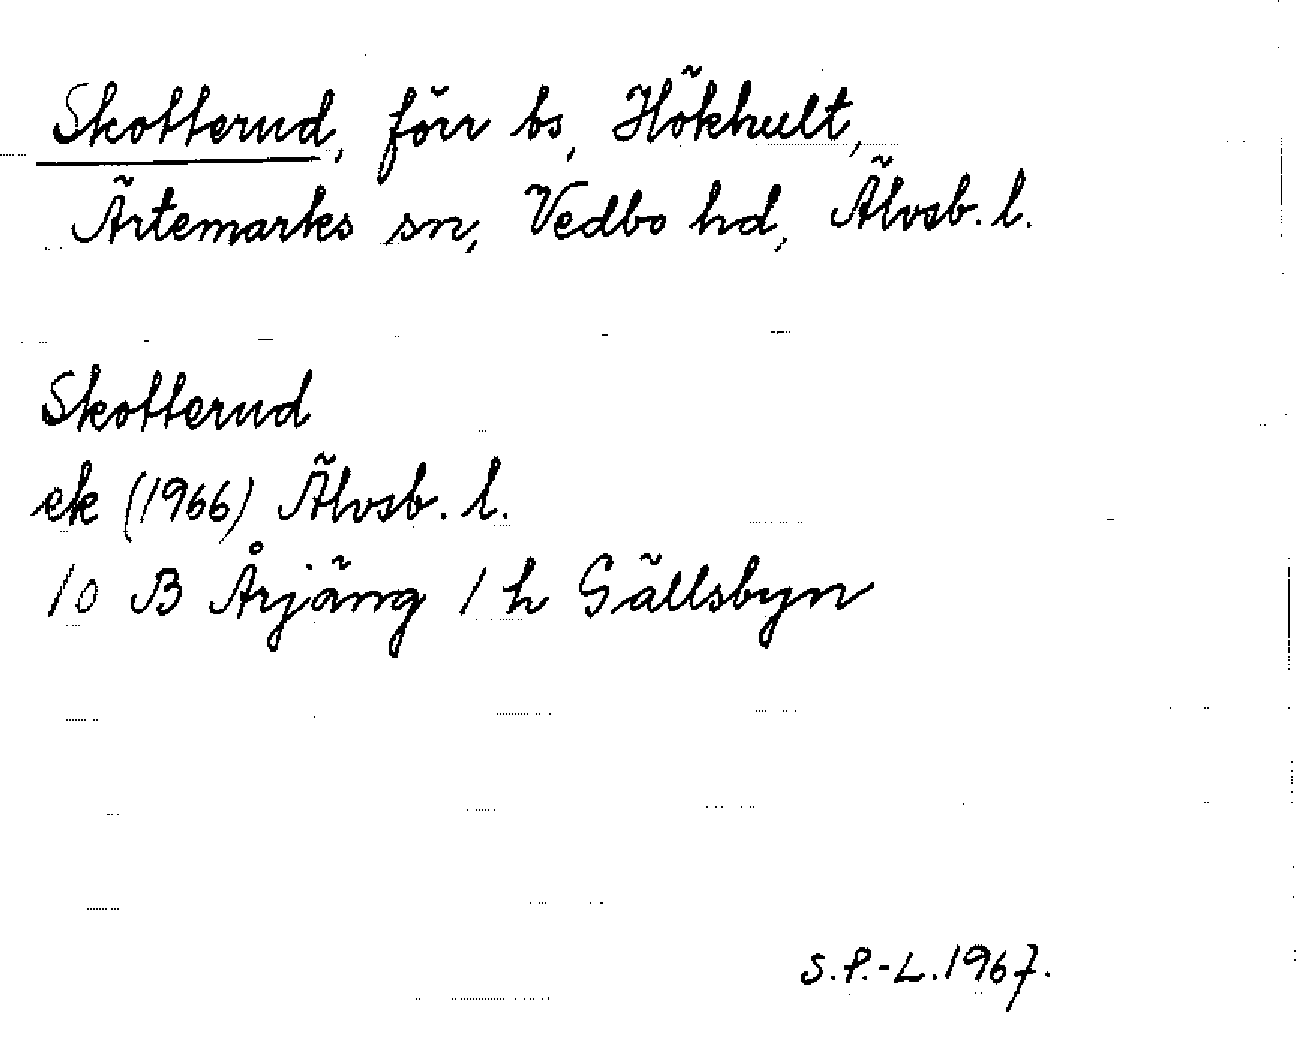 Skotterud, förr bs, Hökhult,
Ärtemarks sn, Vedbo hd, Älvsb. l.
Skotterud
ek (1966) Älvsb. l.
10 B Årjäng 1 h Gällsbyn
S.P.-L. 1967.